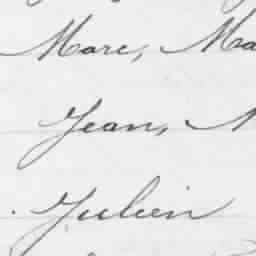 Marc, Ma
Jean,
Julien